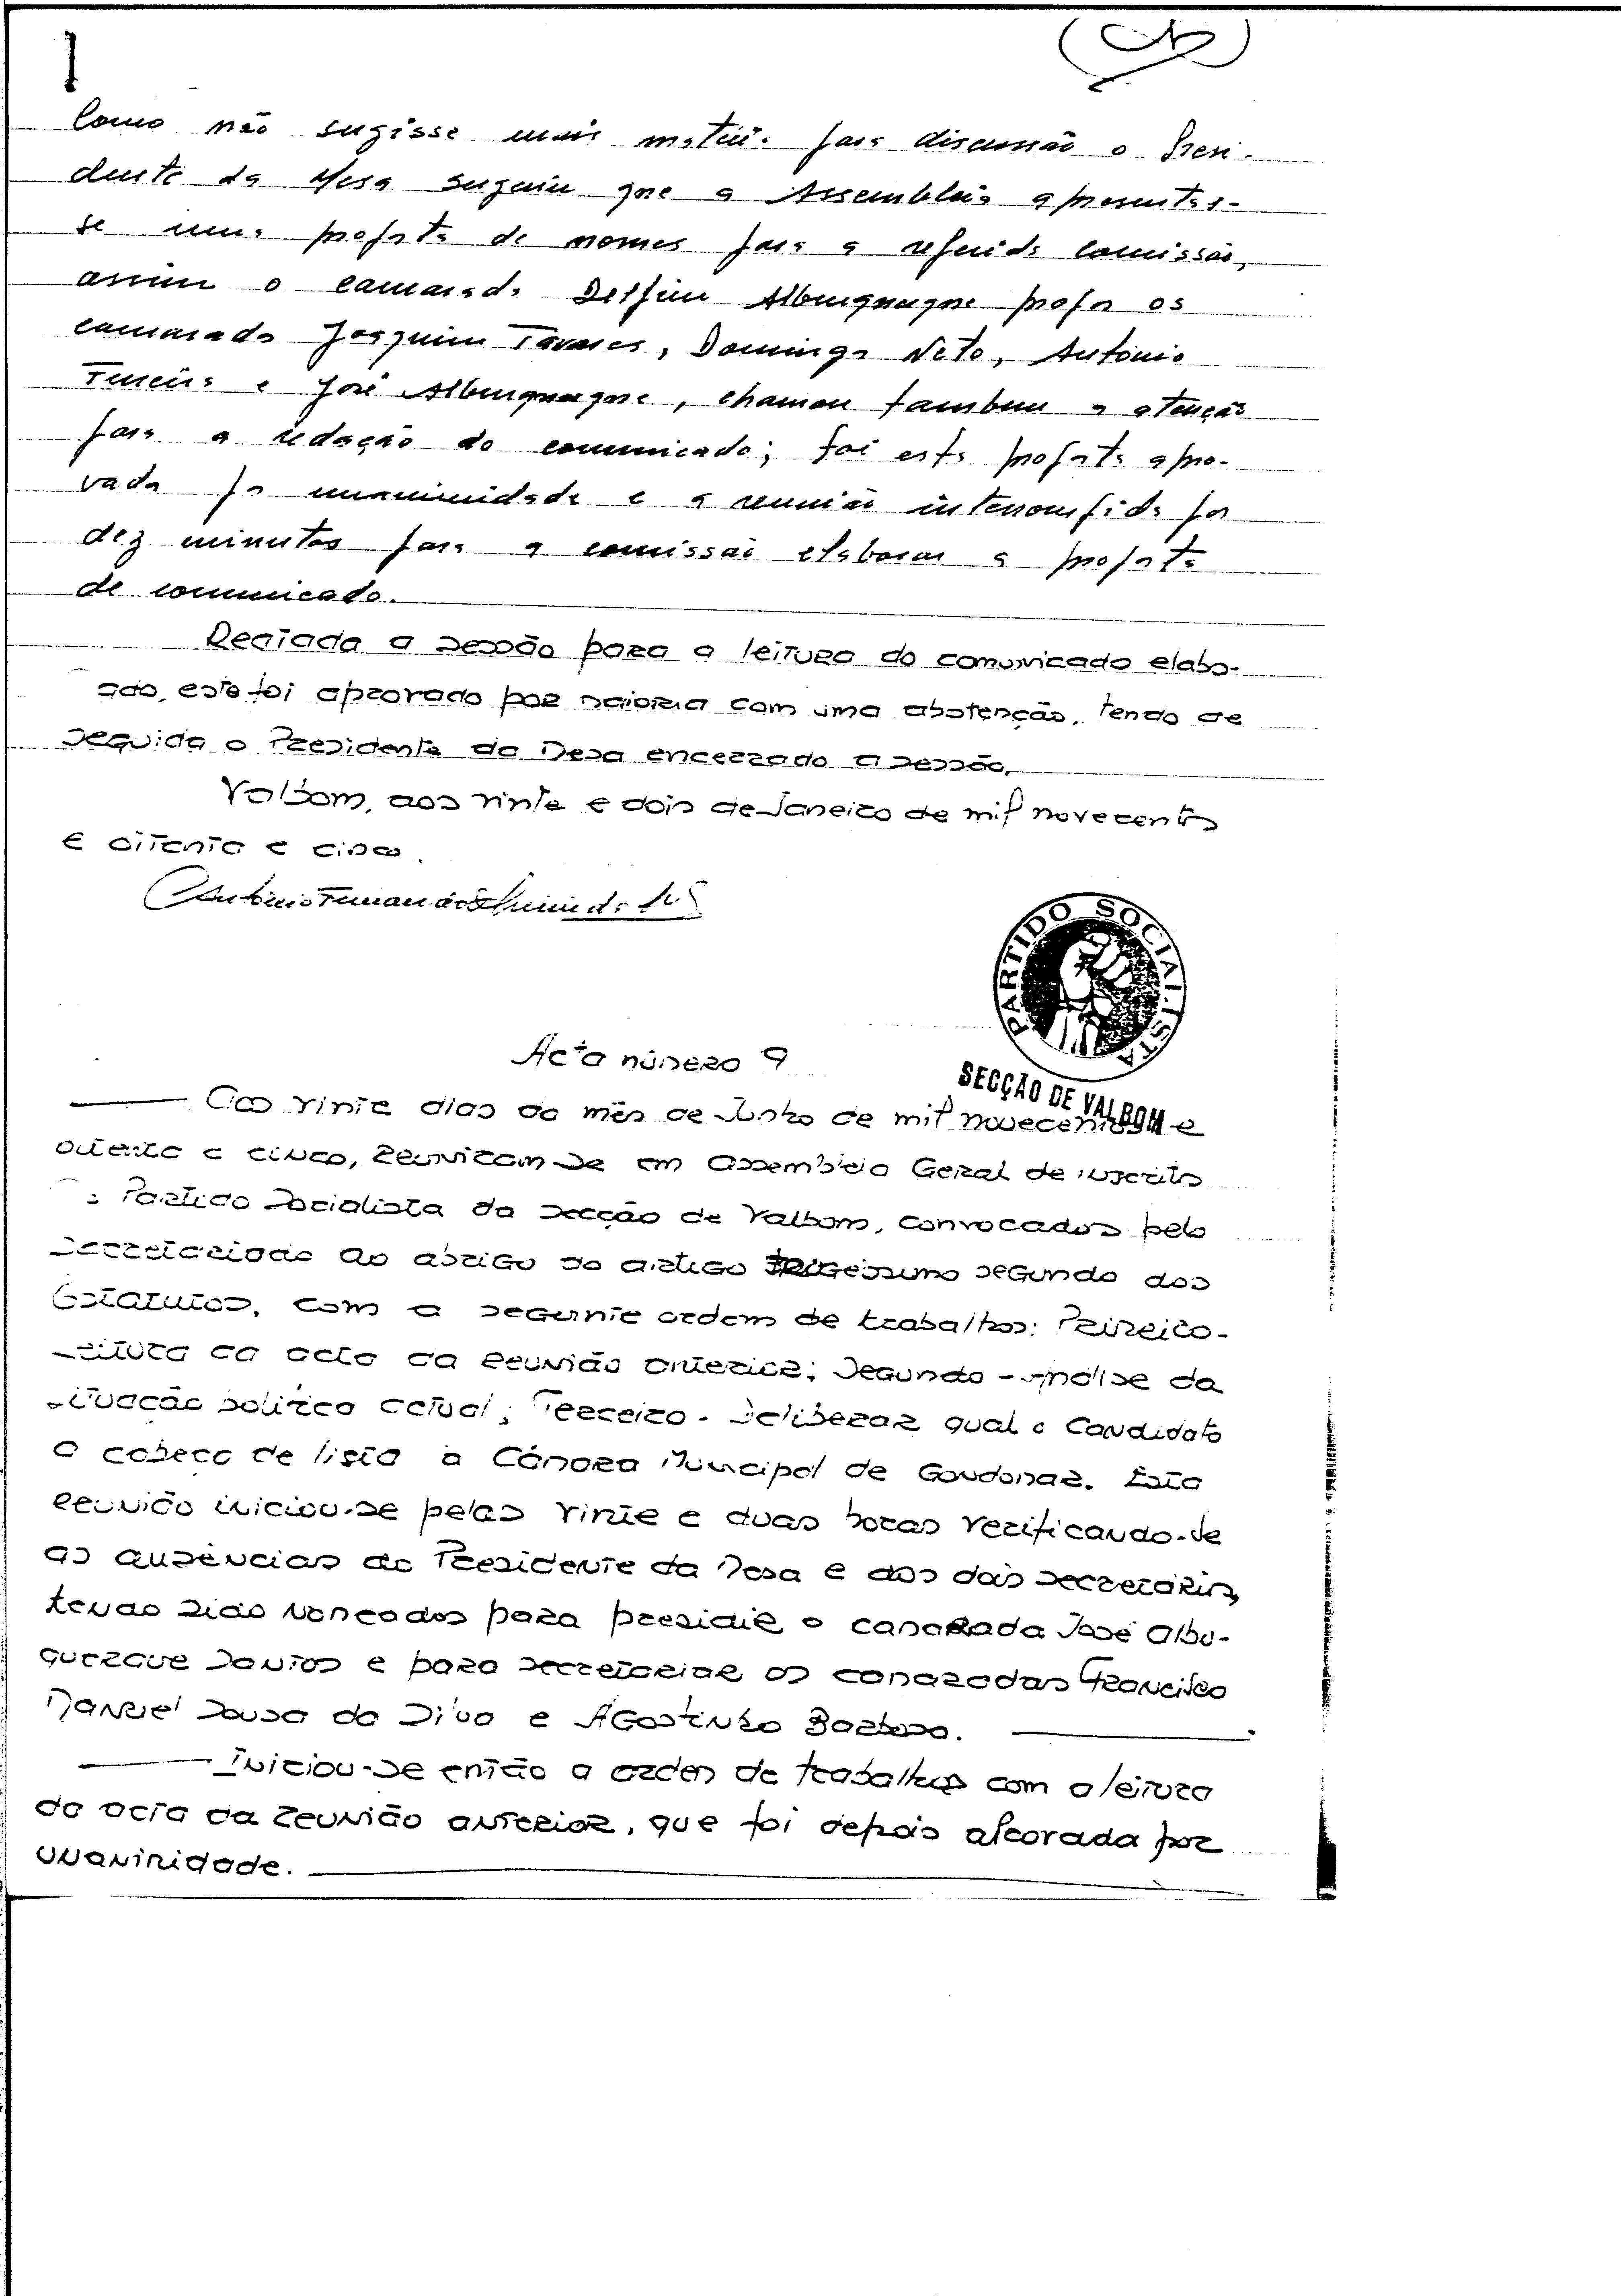 Como não sugisse mais matéria para discussão o Presi-
dente da Mesa sugeriu que a Assembleia apresentas-
se uma proposta de nomes para a referida comissão,
assim o camarada Delfim Albuquerque propos os
camarada Joaquim Tavares, Domingos Neto, António
Ferreira e José Albuquerque, chamou tambem a atenção
para a redação do comunicado; foi esta proposta apro-
vada por unanimidade e a reunião interrompida por
dez minutos para a comissão elaborar a proposta
de comunicado.
Reatada a sessão para a leitura do comunicado elabo-
ado, este foi aprovado por maioria com uma abstenção, tendo de
seguida o Presidente da Mesa encerrado a sessão.
Valbom, aos vinte e dois de Janeiro de mil novecentos
e oitenta e cinco.
António
PARTIDO SOCIALISTA
SECÇÃO DE VALBOM
Acta número 9
Aos vinte dias do mês de Junho de mil novecentos e
oitenta e cinco, reuniram-se em Assembleia Geral de inscritos
Partido Socialista da secção de Valbom, convocados pelo
Secretariado ao abrigo do artigo trigéssimo segundo dos
Estatutos, com a seguinte ordem de trabalhos: Primeiro-
Leitura da acta da reunião anterior; Segundo - Análise da
situação política actual; Terceiro - Deliberar qual o Candidato
a cabeça de lista à Câmara Municipal de Gondomar. Esta
reunião iniciou-se pelas vinte e duas horas verificando-se
as ausências do Presidente da Mesa e dos dois secretários,
tendo sido nomeados para presidir o camarada José Albu-
querque Santos e para secretariar os camaradas Francisco
Manuel Sousa da Silva e Agostinho Barbosa.
Iniciou-se então a ordem de trabalhos com a leitura
da acta da reunião anterior, que foi depois aprovada por
unanimidade.